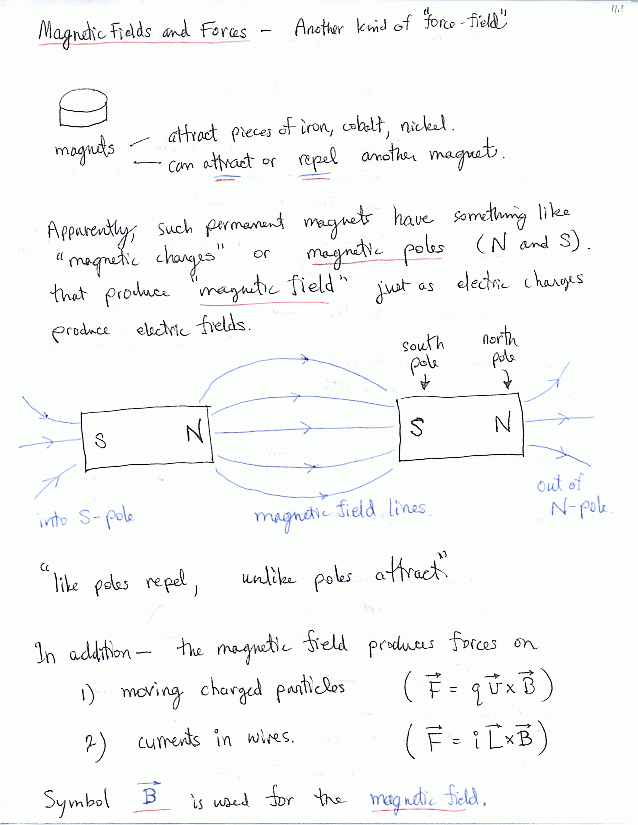 11.1
Magnetic Fields and Forces - Another kind of "force-field"
magnets - attract pieces of iron, cobalt, nickel.
- can attract or repel another magnet.
Apparently, such permanent magnets have something like
"magnetic charges" or magnetic poles (N and S).
that produce "magnetic field" just as electric charges
produce electric fields.
south pole
north pole
S N
S N
into S-pole
magnetic field lines.
out of N-pole.
"like poles repel, unlike poles attract"
In addition - the magnetic field produces forces on
1) moving charged particles (F⃗ = q v⃗ × B⃗)
2) currents in wires. (F⃗ = i L⃗ × B⃗)
Symbol B⃗ is used for the magnetic field.